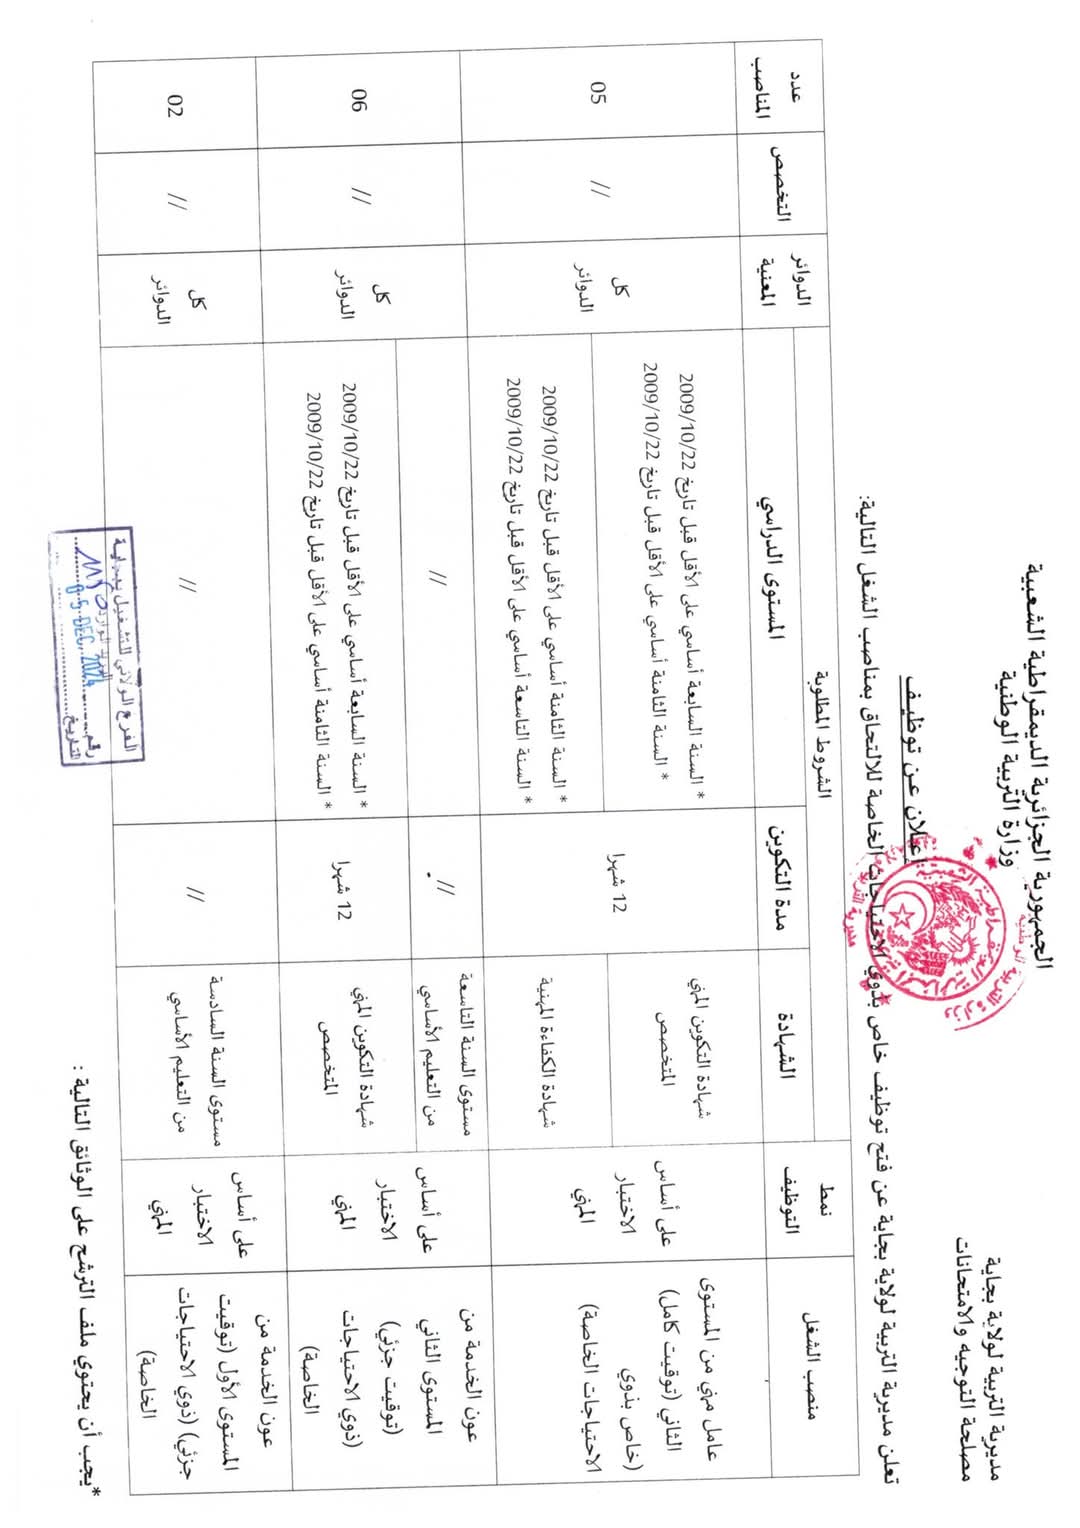 الجمهورية الجزائرية الديمقراطية الشعبية
وزارة التربية الوطنية
مديرية التربية لولاية بجاية
مصلحة التوجيه والامتحانات
إعلان عن توظيف
تعلن مديرية التربية لولاية بجاية عن فتح توظيف خاص بذوي الاحتياجات الخاصة للالتحاق بمناصب الشغل التالية:
منصب الشغل
نمط
التوظيف
الشروط المطلوبة
الشهادة
مدة التكوين
المستوى الدراسي
الدوائر
المعنية
التخصص
عدد
المناصب
عامل مهني من المستوى
الثاني (توقيت كامل)
(خاص بذوي
الاحتياجات الخاصة)
على أساس
الاختبار
المهني
شهادة التكوين المهني
المتخصص
شهادة الكفاءة المهنية
12 شهرا
* السنة السابعة أساسي على الأقل قبل تاريخ 2009/10/22
* السنة الثامنة أساسي على الأقل قبل تاريخ 2009/10/22
* السنة الثامنة أساسي على الأقل قبل تاريخ 2009/10/22
* السنة التاسعة أساسي على الأقل قبل تاريخ 2009/10/22
كل
الدوائر
//
05
عون الخدمة من
المستوى الثاني
(توقيت جزئي)
(ذوي الاحتياجات
الخاصة)
على أساس
الاختبار
المهني
مستوى السنة التاسعة
من التعليم الأساسي
//
//
شهادة التكوين المهني
المتخصص
12 شهرا
* السنة السابعة أساسي على الأقل قبل تاريخ 2009/10/22
* السنة الثامنة أساسي على الأقل قبل تاريخ 2009/10/22
كل
الدوائر
//
06
عون الخدمة من
المستوى الأول (توقيت
جزئي) (ذوي الاحتياجات
الخاصة)
على أساس
الاختبار
المهني
مستوى السنة السادسة
من التعليم الأساسي
//
//
كل
الدوائر
//
02
*يجب أن يحتوي ملف الترشح على الوثائق التالية :
الفرع الولائي للتشغيل ببجاية
رقم
التاريخ 05 DEC. 2024